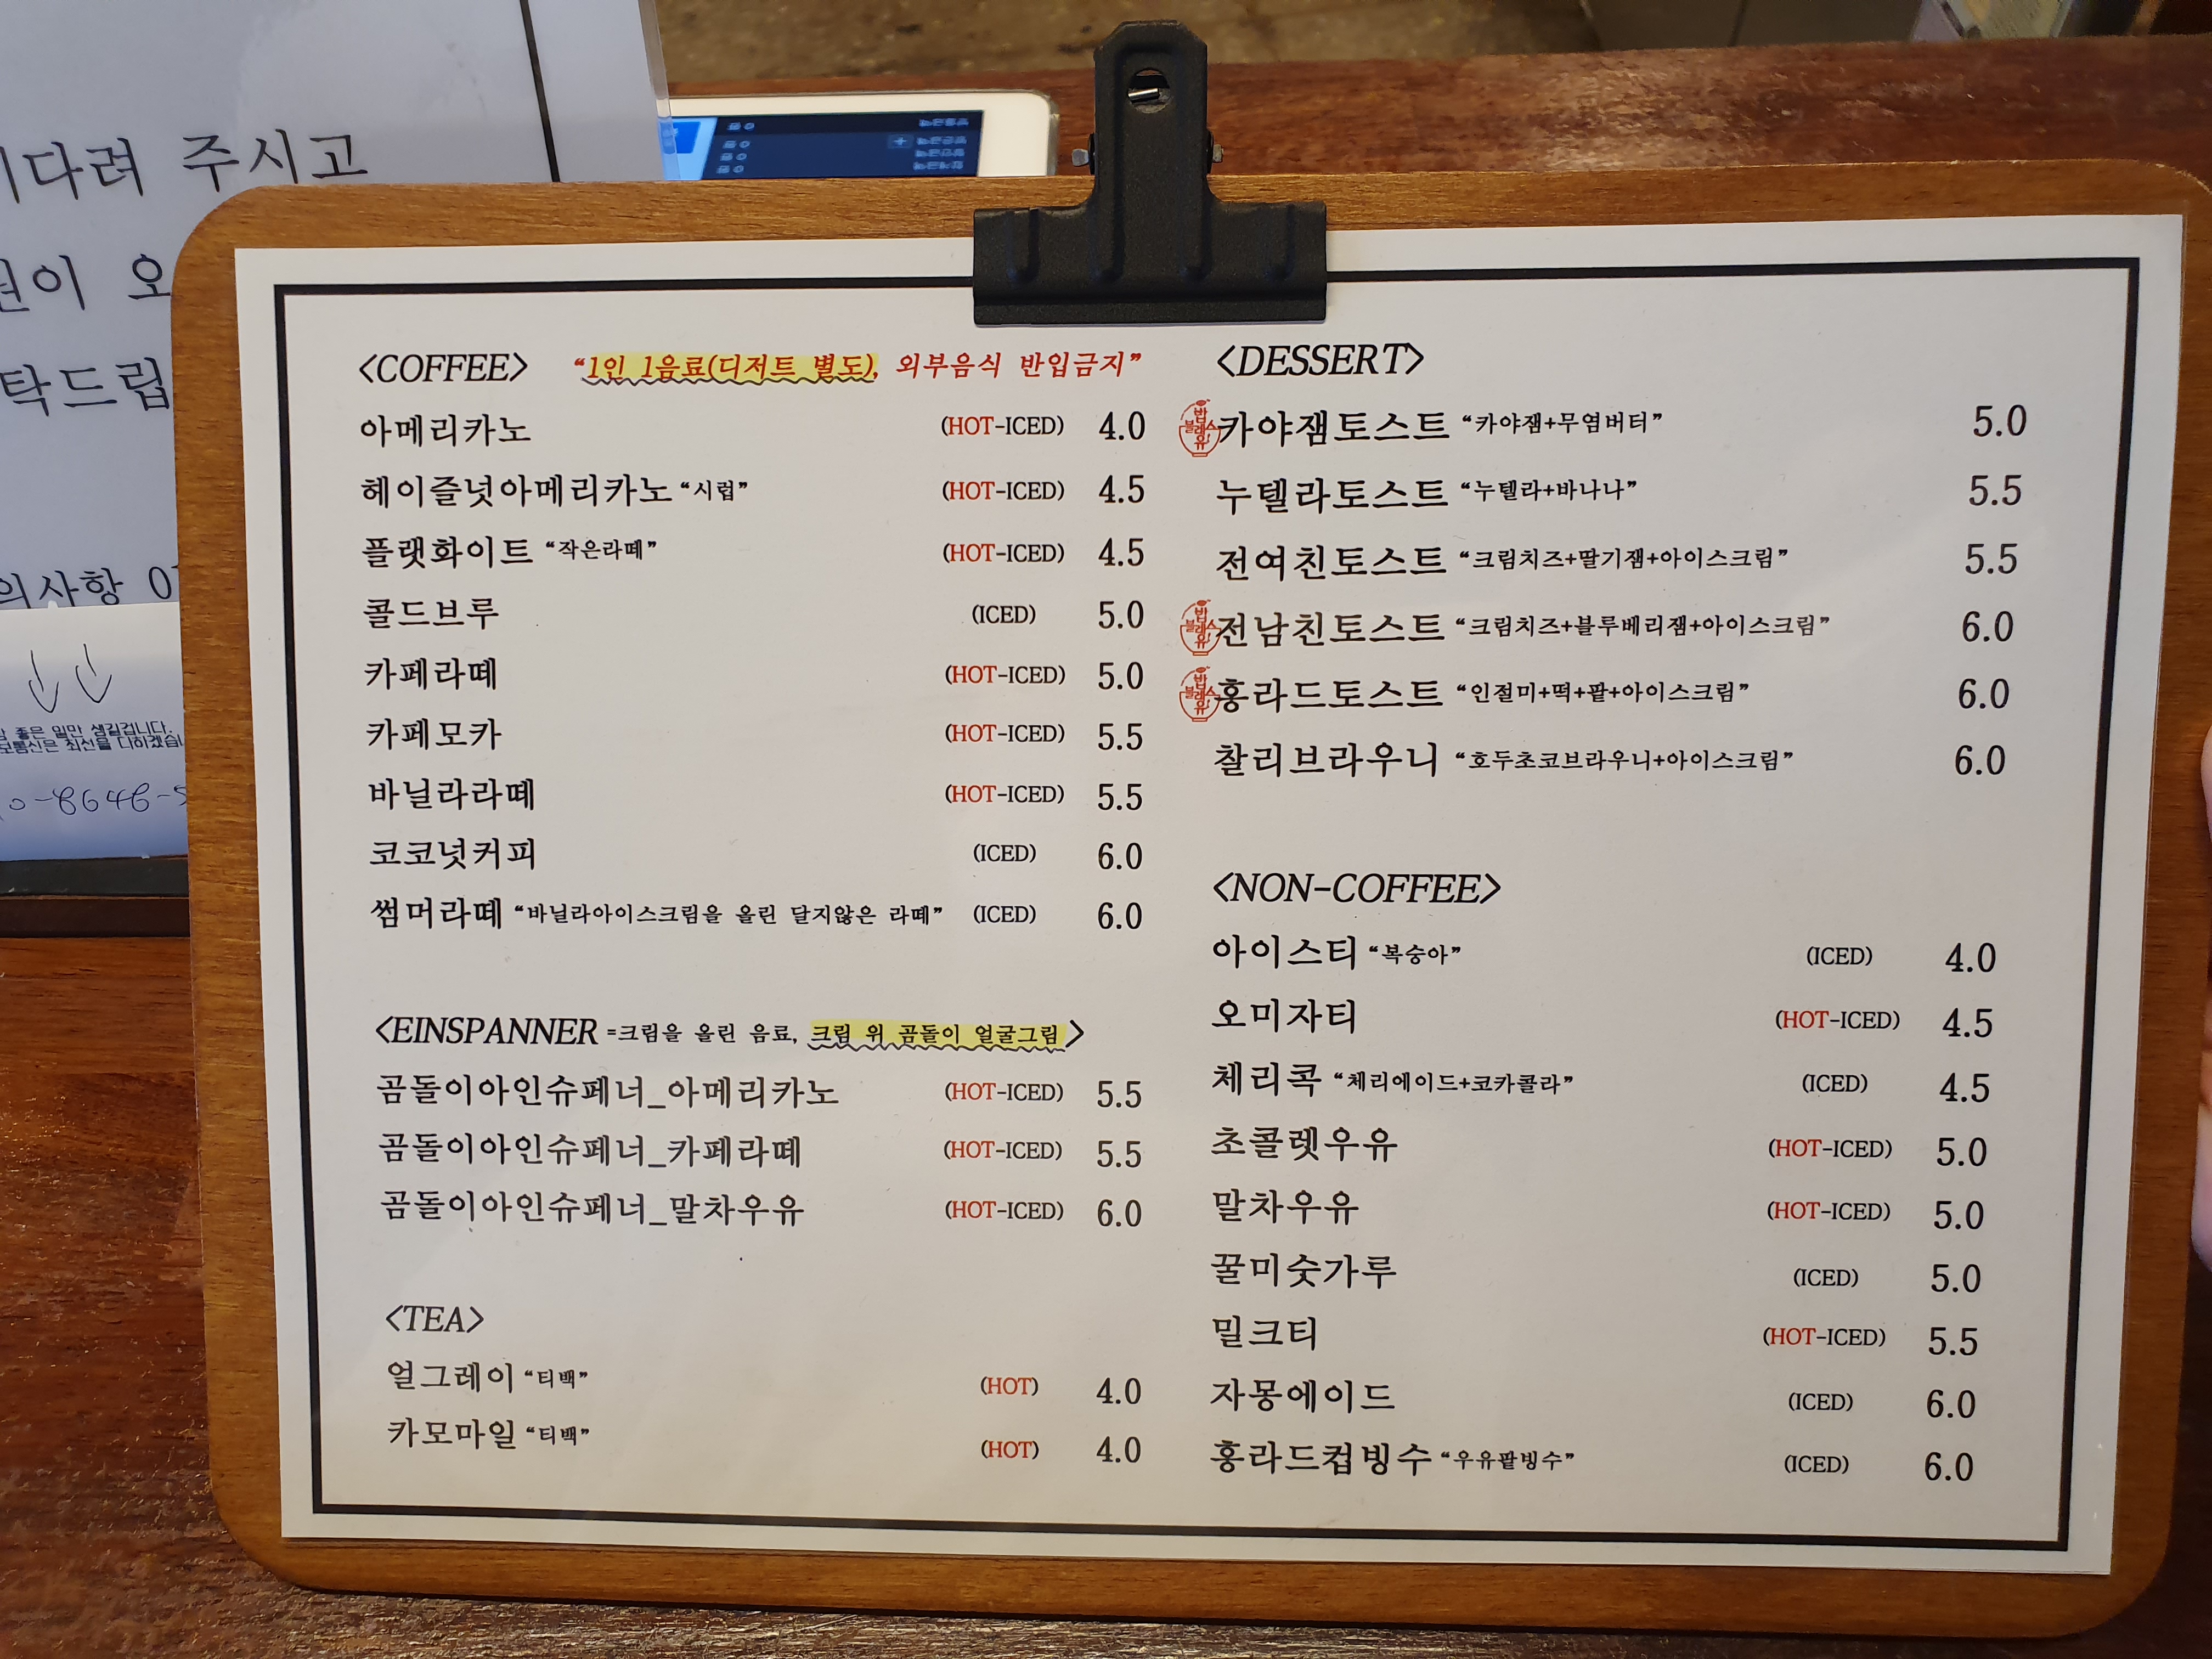 다려 주시고
이 오
탁드립
의사항
좋은 일만 생길겁니다.
<COFFEE> “1인 1음료(디저트 별도), 외부음식 반입금지”
아메리카노 (HOT-ICED) 4.0
헤이즐넛아메리카노 “시럽” (HOT-ICED) 4.5
플랫화이트 “작은라떼” (HOT-ICED) 4.5
콜드브루 (ICED) 5.0
카페라떼 (HOT-ICED) 5.0
카페모카 (HOT-ICED) 5.5
바닐라라떼 (HOT-ICED) 5.5
코코넛커피 (ICED) 6.0
썸머라떼 “바닐라아이스크림을 올린 달지않은 라떼” (ICED) 6.0
<EINSPANNER =크림을 올린 음료, 크림 위 곰돌이 얼굴그림>
곰돌이아인슈페너_아메리카노 (HOT-ICED) 5.5
곰돌이아인슈페너_카페라떼 (HOT-ICED) 5.5
곰돌이아인슈페너_말차우유 (HOT-ICED) 6.0
<TEA>
얼그레이 “티백” (HOT) 4.0
카모마일 “티백” (HOT) 4.0
<DESSERT>
밥블레스유 카야잼토스트 “카야잼+무염버터” 5.0
누텔라토스트 “누텔라+바나나” 5.5
전여친토스트 “크림치즈+딸기잼+아이스크림” 5.5
밥블레스유 전남친토스트 “크림치즈+블루베리잼+아이스크림” 6.0
밥블레스유 홍라드토스트 “인절미+떡+팥+아이스크림” 6.0
찰리브라우니 “호두초코브라우니+아이스크림” 6.0
<NON-COFFEE>
아이스티 “복숭아” (ICED) 4.0
오미자티 (HOT-ICED) 4.5
체리콕 “체리에이드+코카콜라” (ICED) 4.5
초콜렛우유 (HOT-ICED) 5.0
말차우유 (HOT-ICED) 5.0
꿀미숫가루 (ICED) 5.0
밀크티 (HOT-ICED) 5.5
자몽에이드 (ICED) 6.0
홍라드컵빙수 “우유팥빙수” (ICED) 6.0